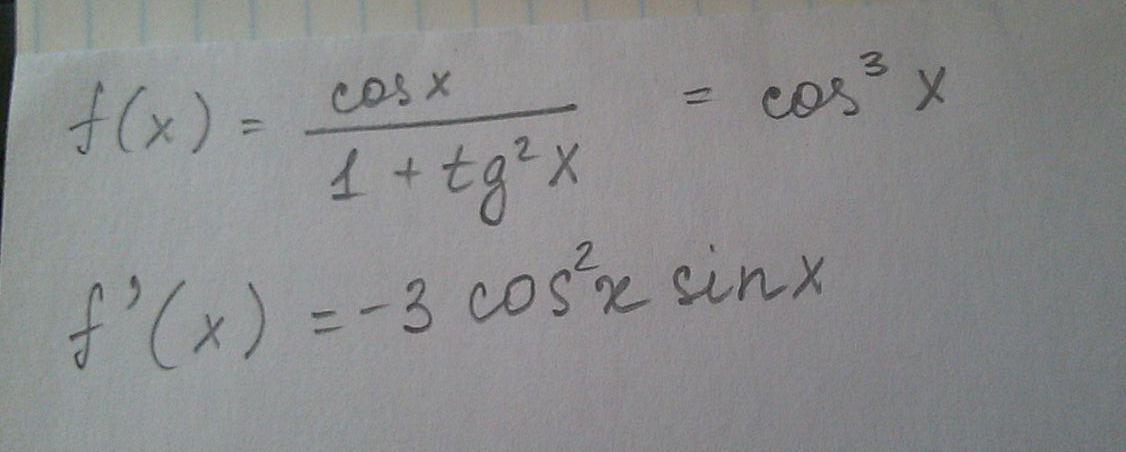 f(x) = cos x / 1 + tg² x = cos³ x
f'(x) = -3 cos² x sin x